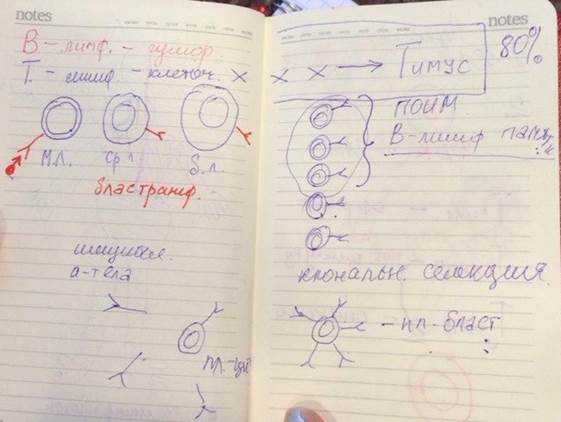 notes
В-лимф. - гумор
Т. - лимф - клеточ.
М.Л. Ср Л. Б.Л.
бластранф.
а-тела
пл-цит
notes
80%
Тимус
ПОИМ
В-лимф памяти
клональн. селекция.
-пл-бласт